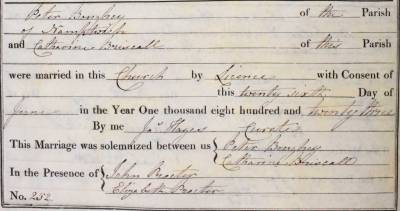 Peter Boughey of the Parish
of Namptwich
and Catharine Briscall of this Parish
were married in this Church by Licence with Consent of
this twenty sixth Day of
June in the Year One thousand eight hundred and twenty three
By me Jas Hayes Curate
This Marriage was solemnized between us { Peter Boughey
Catharine Briscall
In the Presence of { John Procter
Elizabeth Procter
No. 252.